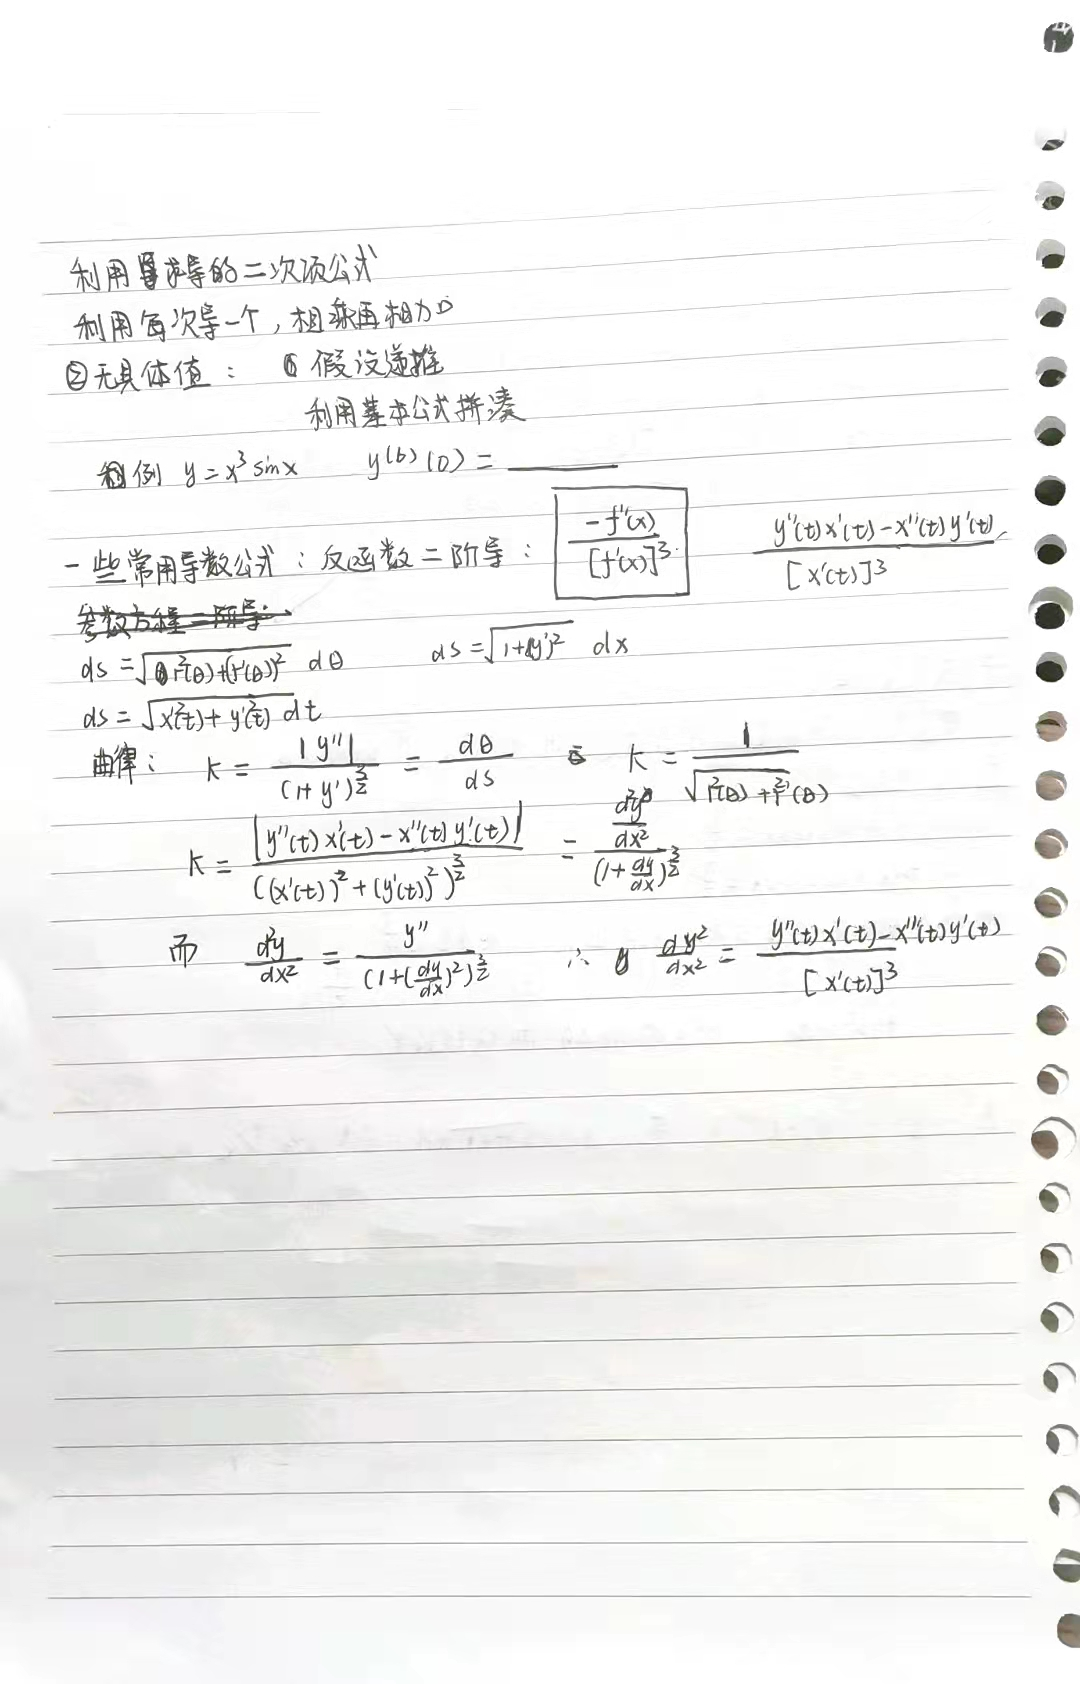 利用求导的二次项公式
利用每次导一个,相乘再相加
②无具体值: 假设递推
利用基本公式拼凑
例 y=x³sinx y⁽⁶⁾(0)=______
一些常用导数公式:反函数二阶导: -f''(x)/[f'(x)]³ (y''(t)x'(t)-x''(t)y'(t))/[x'(t)]³
参数方程二阶导:
ds=√(r²(θ)+(r'(θ))²) dθ ds=√(1+(y')²) dx
ds=√(x'²(t)+y'²(t)) dt
曲律: K=|y''|/(1+y')^(3/2) = dθ/ds K=1/√(r²(θ)+r²'(θ))
K=|y''(t)x'(t)-x''(t)y'(t)|/((x'(t))²+(y'(t))²)^(3/2) = (d²y/dx²)/(1+dy/dx)^(3/2)
而 d²y/dx² = y''/(1+(dy/dx)²)^(3/2) ∴ dy²/dx² = (y''(t)x'(t)-x''(t)y'(t))/[x'(t)]³